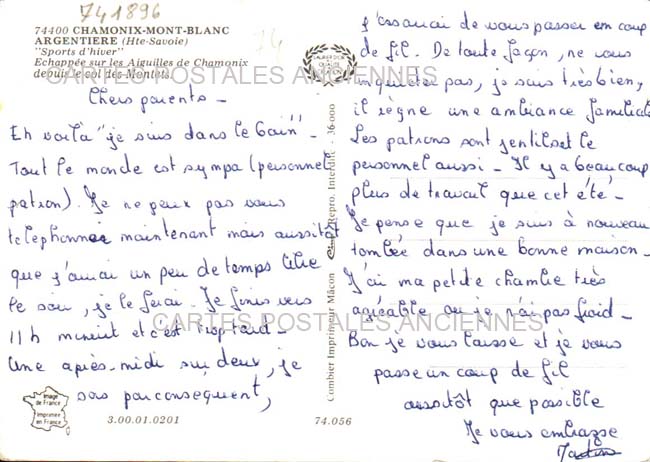 741896
74
74400 CHAMONIX-MONT-BLANC
ARGENTIERE (Hte-Savoie)
"Sports d'hiver"
Echappée sur les Aiguilles de Chamonix
depuis le col des Montets
CARTES POSTALES ANCIENNES
Chers parents -
Eh voilà "je suis dans le bain" -
Tout le monde est sympa (personnel,
patron). Je ne peux pas vous
telephonner maintenant mais aussitôt
que j'aurai un peu de temps libre
le soir, je le ferai. Je finis vers
11h minuit et c'est trop tard -
CARTES POSTALES ANCIENNES
Une après-midi sur deux, je
sors par conséquent,
Image de France
Imprimée en France
3.00.01.0201
74.056
Combier Imprimeur Mâcon
Repro. Interdite - 36.000
j'essaierai de vous passer un coup
de fil. De toute façon, ne vous
inquiétez pas, je suis très bien,
il règne une ambiance familiale
Les patrons sont gentils et le
personnel aussi - Il y a beaucoup
plus de travail que cet été -
Je pense que je suis à nouveau
tombée dans une bonne maison -
J'ai ma petite chambre très
agréable ou je n'ai pas froid -
Bon je vous laisse et je vous
passe un coup de fil
aussitôt que possible
Je vous embrasse